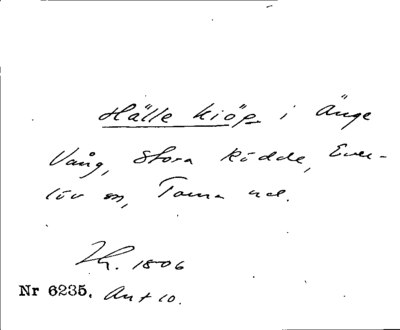 Hälle kiöp i Änge
Vång, Stora Rödde, Ever-
löv sn, Torna hd.
1806
Nr 6235. Ant 10.